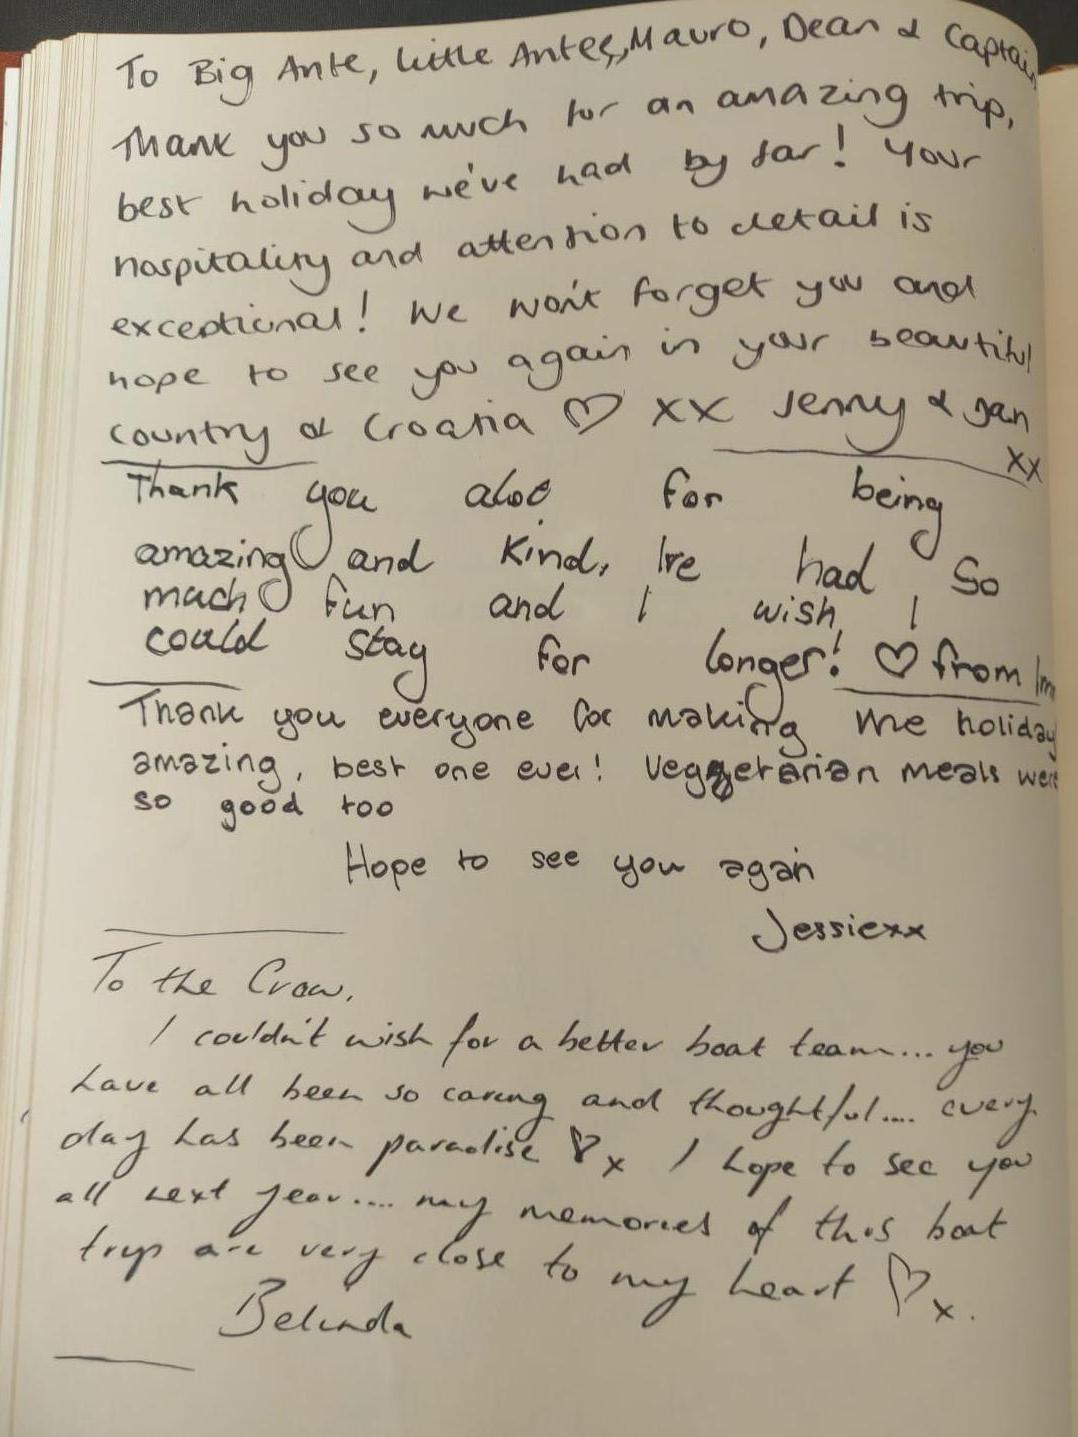 To Big Ante, little Ante, Mauro, Dean & Captain
Thank you so much for an amazing trip,
best holiday we've had by far! Your
hospitality and attention to detail is
exceptional! We won't forget you and
hope to see you again in your beautiful
country of Croatia ♡ xx Jenny & Jan
xx
Thank you also for being
amazing and kind, I've had so
much fun and I wish I
could stay for longer! ♡ from
Thank you everyone for making me holiday
amazing, best one ever! Veggetarian meals were
so good too
Hope to see you again
Jessiexx
To the Crew,
I couldn't wish for a better boat team... you
have all been so caring and thoughtful.... every
day has been paradise ♡x I hope to see you
all next year.... my memories of this boat
trip are very close to my heart ♡x.
Belinda